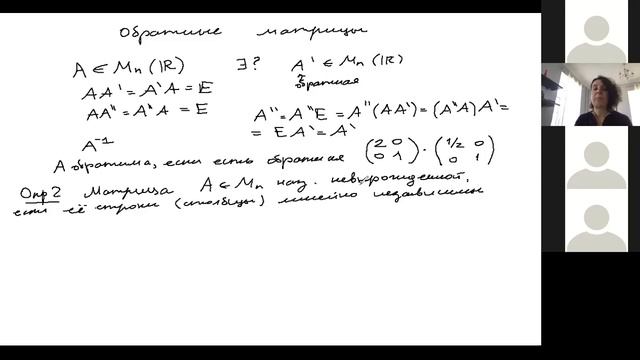 Обратные матрицы
A ∈ Mₙ(ℝ) ∃? A' ∈ Mₙ(ℝ)
обратная
AA' = A'A = E
AA'' = A''A = E
A'' = A''E = A''(AA') = (A''A)A' =
= EA' = A'
A⁻¹
A обратима, если есть обратная (2 0 0 1) · (1/2 0 0 1)
Опр 2 Матрица A ∈ Mₙ наз. невырожденной,
если её строки (столбцы) линейно независимы